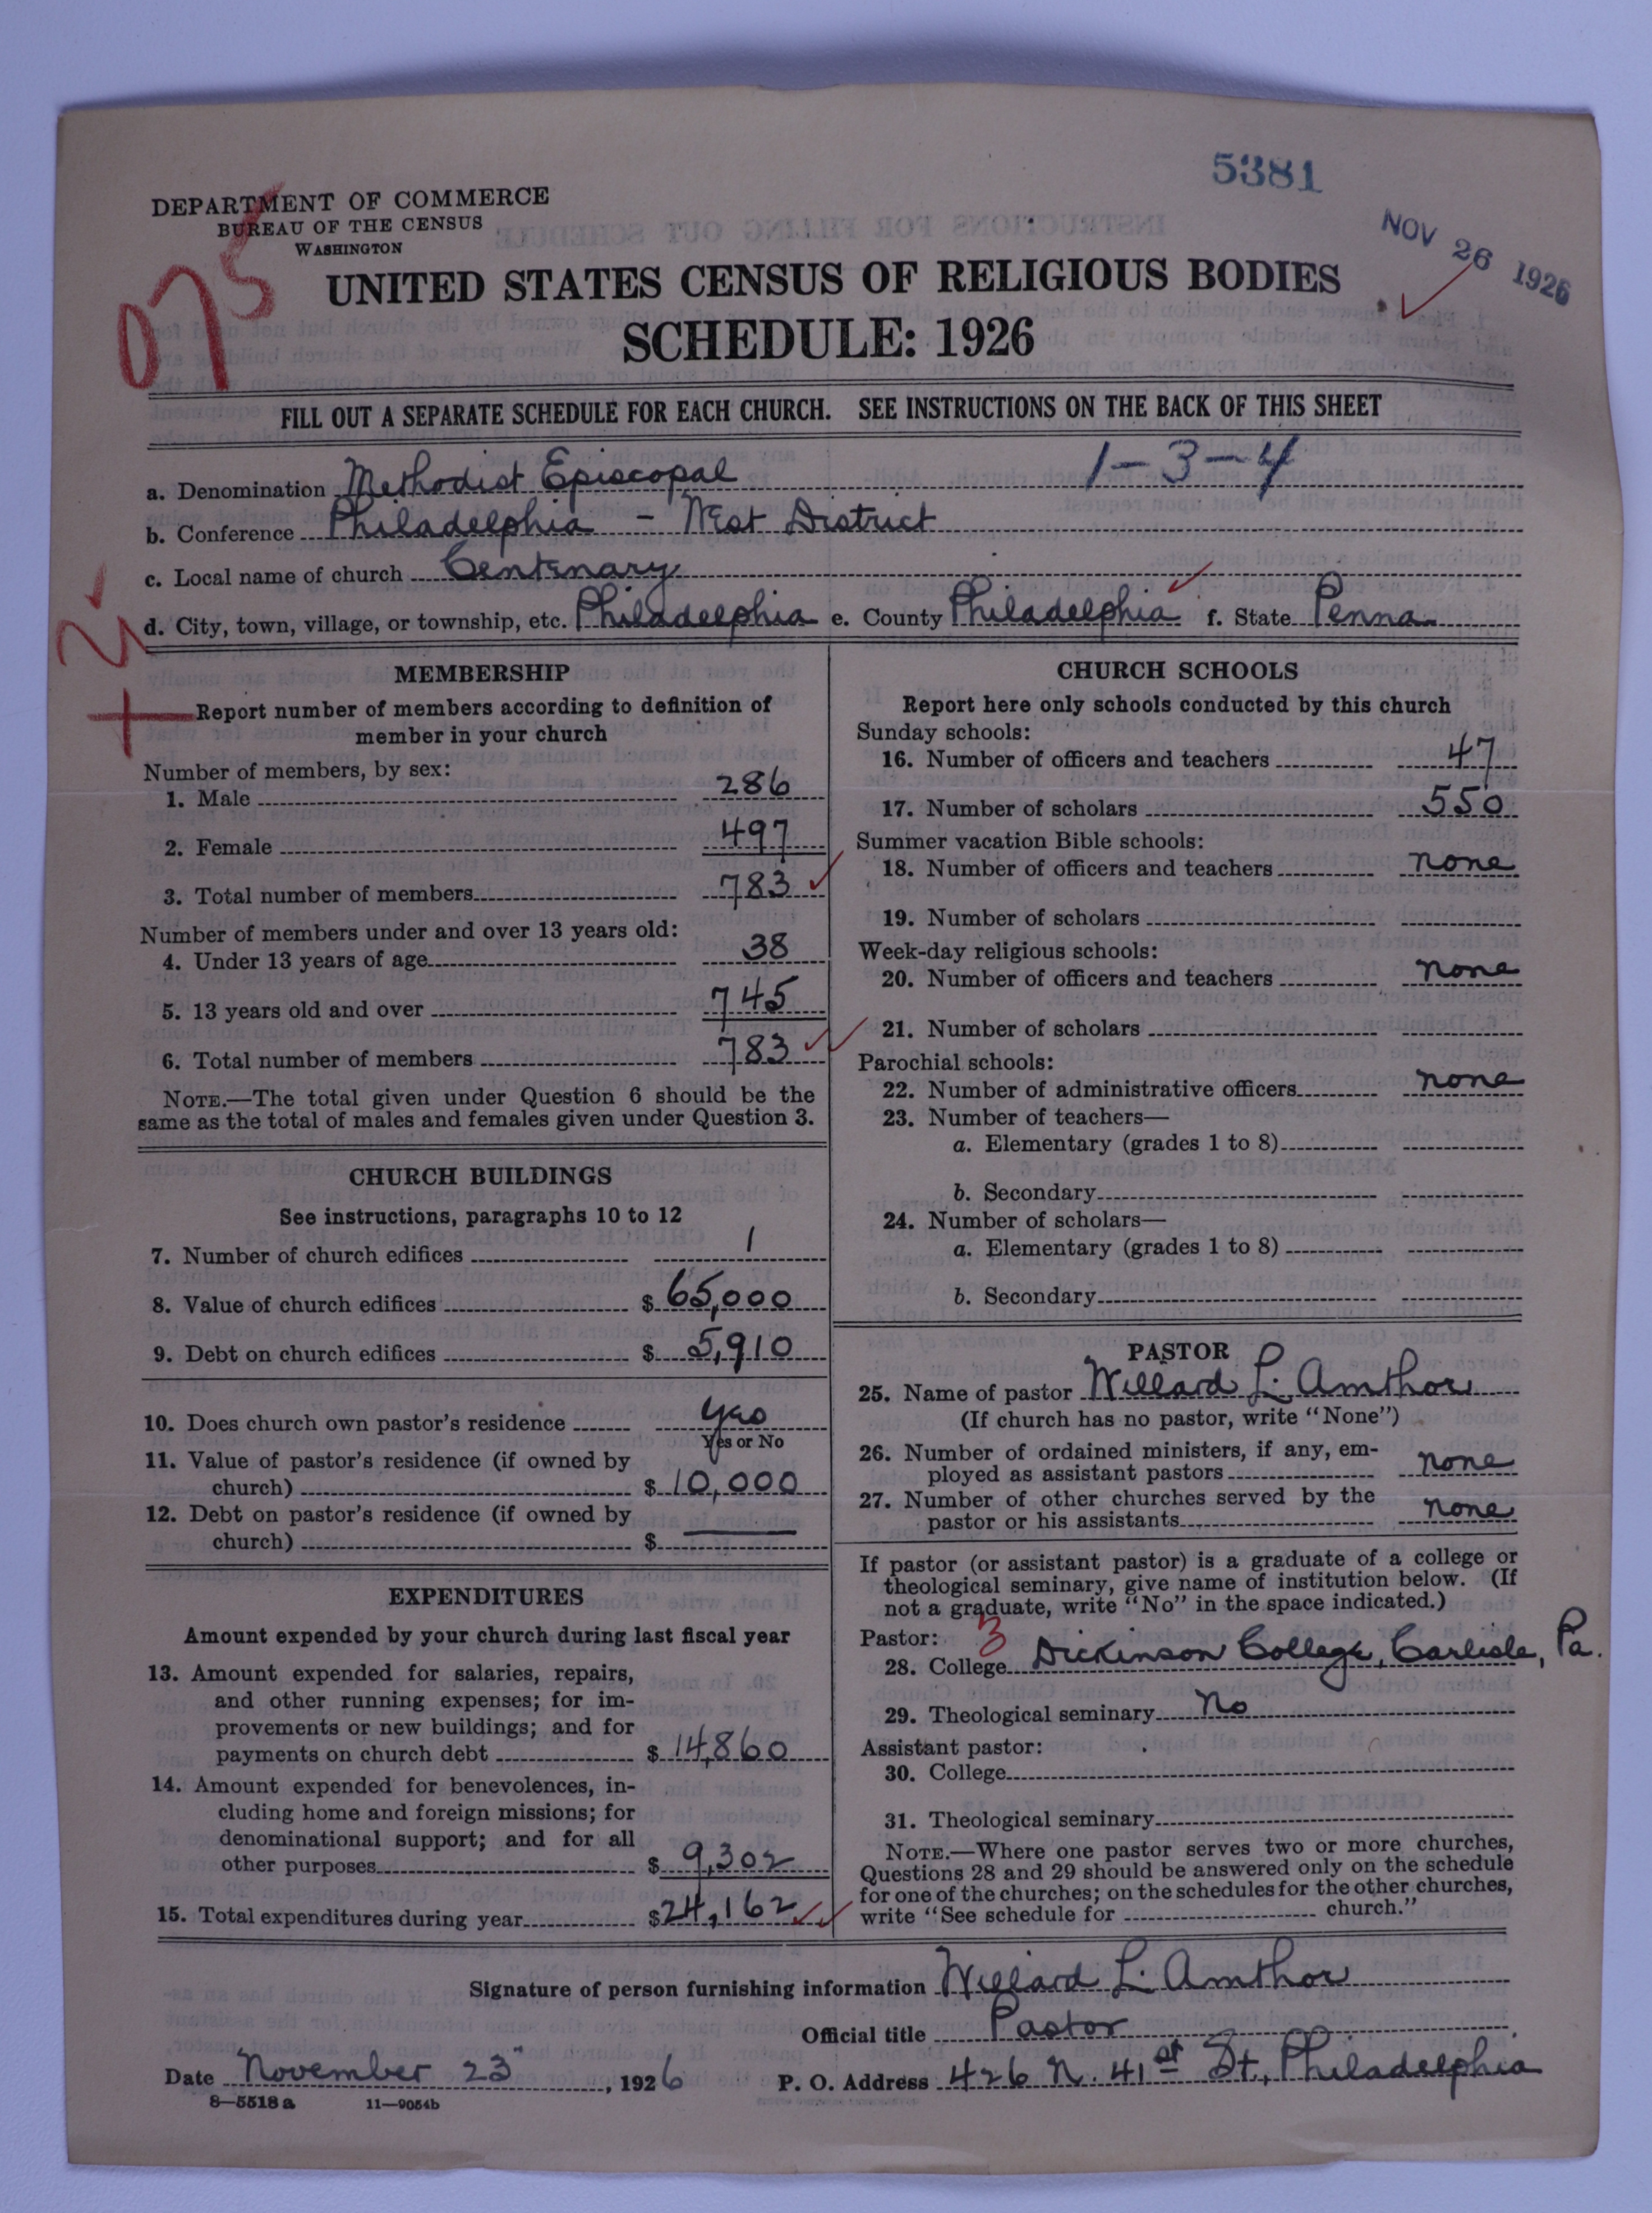 5381
NOV 26 1926
DEPARTMENT OF COMMERCE
BUREAU OF THE CENSUS
WASHINGTON
075
UNITED STATES CENSUS OF RELIGIOUS BODIES
SCHEDULE: 1926
FILL OUT A SEPARATE SCHEDULE FOR EACH CHURCH. SEE INSTRUCTIONS ON THE BACK OF THIS SHEET
1-3-4
a. Denomination Methodist Episcopal
b. Conference Philadelphia - West District
c. Local name of church Centenary
d. City, town, village, or township, etc. Philadelphia e. County Philadelphia f. State Penna.
MEMBERSHIP
Report number of members according to definition of
member in your church
Number of members, by sex:
1. Male 286
2. Female 497
3. Total number of members 783
Number of members under and over 13 years old:
4. Under 13 years of age 38
5. 13 years old and over 745
6. Total number of members 783
NOTE.—The total given under Question 6 should be the
same as the total of males and females given under Question 3.
CHURCH BUILDINGS
See instructions, paragraphs 10 to 12
7. Number of church edifices 1
8. Value of church edifices $ 65,000
9. Debt on church edifices $ 5,910
10. Does church own pastor's residence Yes
Yes or No
11. Value of pastor's residence (if owned by
church) $ 10,000
12. Debt on pastor's residence (if owned by
church) $ —
EXPENDITURES
Amount expended by your church during last fiscal year
13. Amount expended for salaries, repairs,
and other running expenses; for im-
provements or new buildings; and for
payments on church debt $ 14,860
14. Amount expended for benevolences, in-
cluding home and foreign missions; for
denominational support; and for all
other purposes $ 9,302
15. Total expenditures during year $24,162
CHURCH SCHOOLS
Report here only schools conducted by this church
Sunday schools:
16. Number of officers and teachers 47
17. Number of scholars 550
Summer vacation Bible schools:
18. Number of officers and teachers none
19. Number of scholars
Week-day religious schools:
20. Number of officers and teachers none
21. Number of scholars
Parochial schools:
22. Number of administrative officers none
23. Number of teachers—
a. Elementary (grades 1 to 8)
b. Secondary
24. Number of scholars—
a. Elementary (grades 1 to 8)
b. Secondary
PASTOR
25. Name of pastor Willard L. Amthor
(If church has no pastor, write "None")
26. Number of ordained ministers, if any, em-
ployed as assistant pastors none
27. Number of other churches served by the
pastor or his assistants none
If pastor (or assistant pastor) is a graduate of a college or
theological seminary, give name of institution below. (If
not a graduate, write "No" in the space indicated.)
Pastor: 3
28. College Dickinson College, Carlisle, Pa.
29. Theological seminary No
Assistant pastor:
30. College
31. Theological seminary
NOTE.—Where one pastor serves two or more churches,
Questions 28 and 29 should be answered only on the schedule
for one of the churches; on the schedules for the other churches,
write "See schedule for church."
Signature of person furnishing information Willard L. Amthor
Official title Pastor
Date November 23", 1926 P. O. Address 426 N. 41st St., Philadelphia
8—5518 a 11—9054b